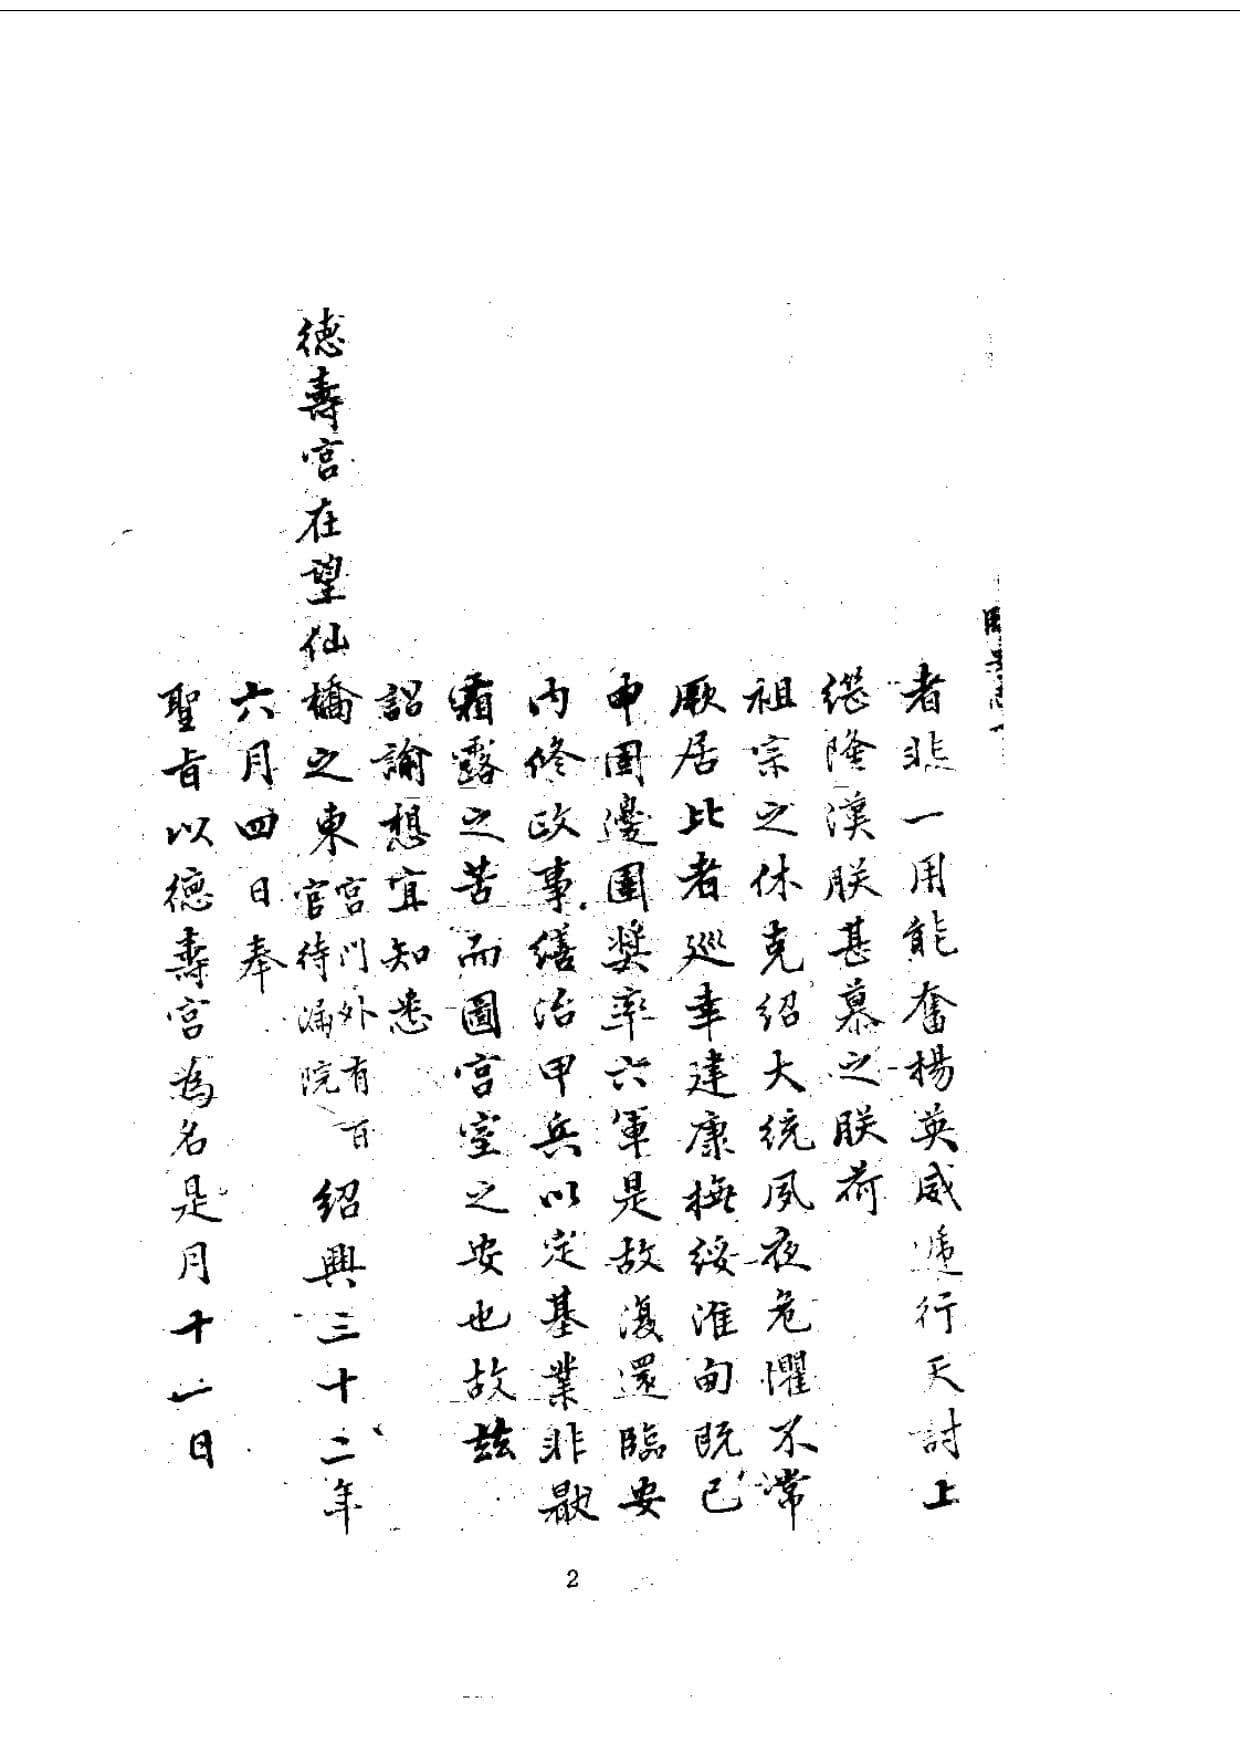 者非一用能奮揚英威遞行天討上
繼隆漢朕甚慕之朕荷
祖宗之休克紹大統夙夜危懼不常
厥居比者巡幸建康撫綏淮甸既已
申固邊圉奨率六軍是故復還臨安
内修政事繕治甲兵以定基業非厭
霜露之苦而圖宫室之安也故茲
詔諭想宜知悉
德壽宫在望仙橋之東
宫門外有百
官待漏院
紹興三十二年
六月四日奉
聖旨以德壽宫為名是月十一日
2